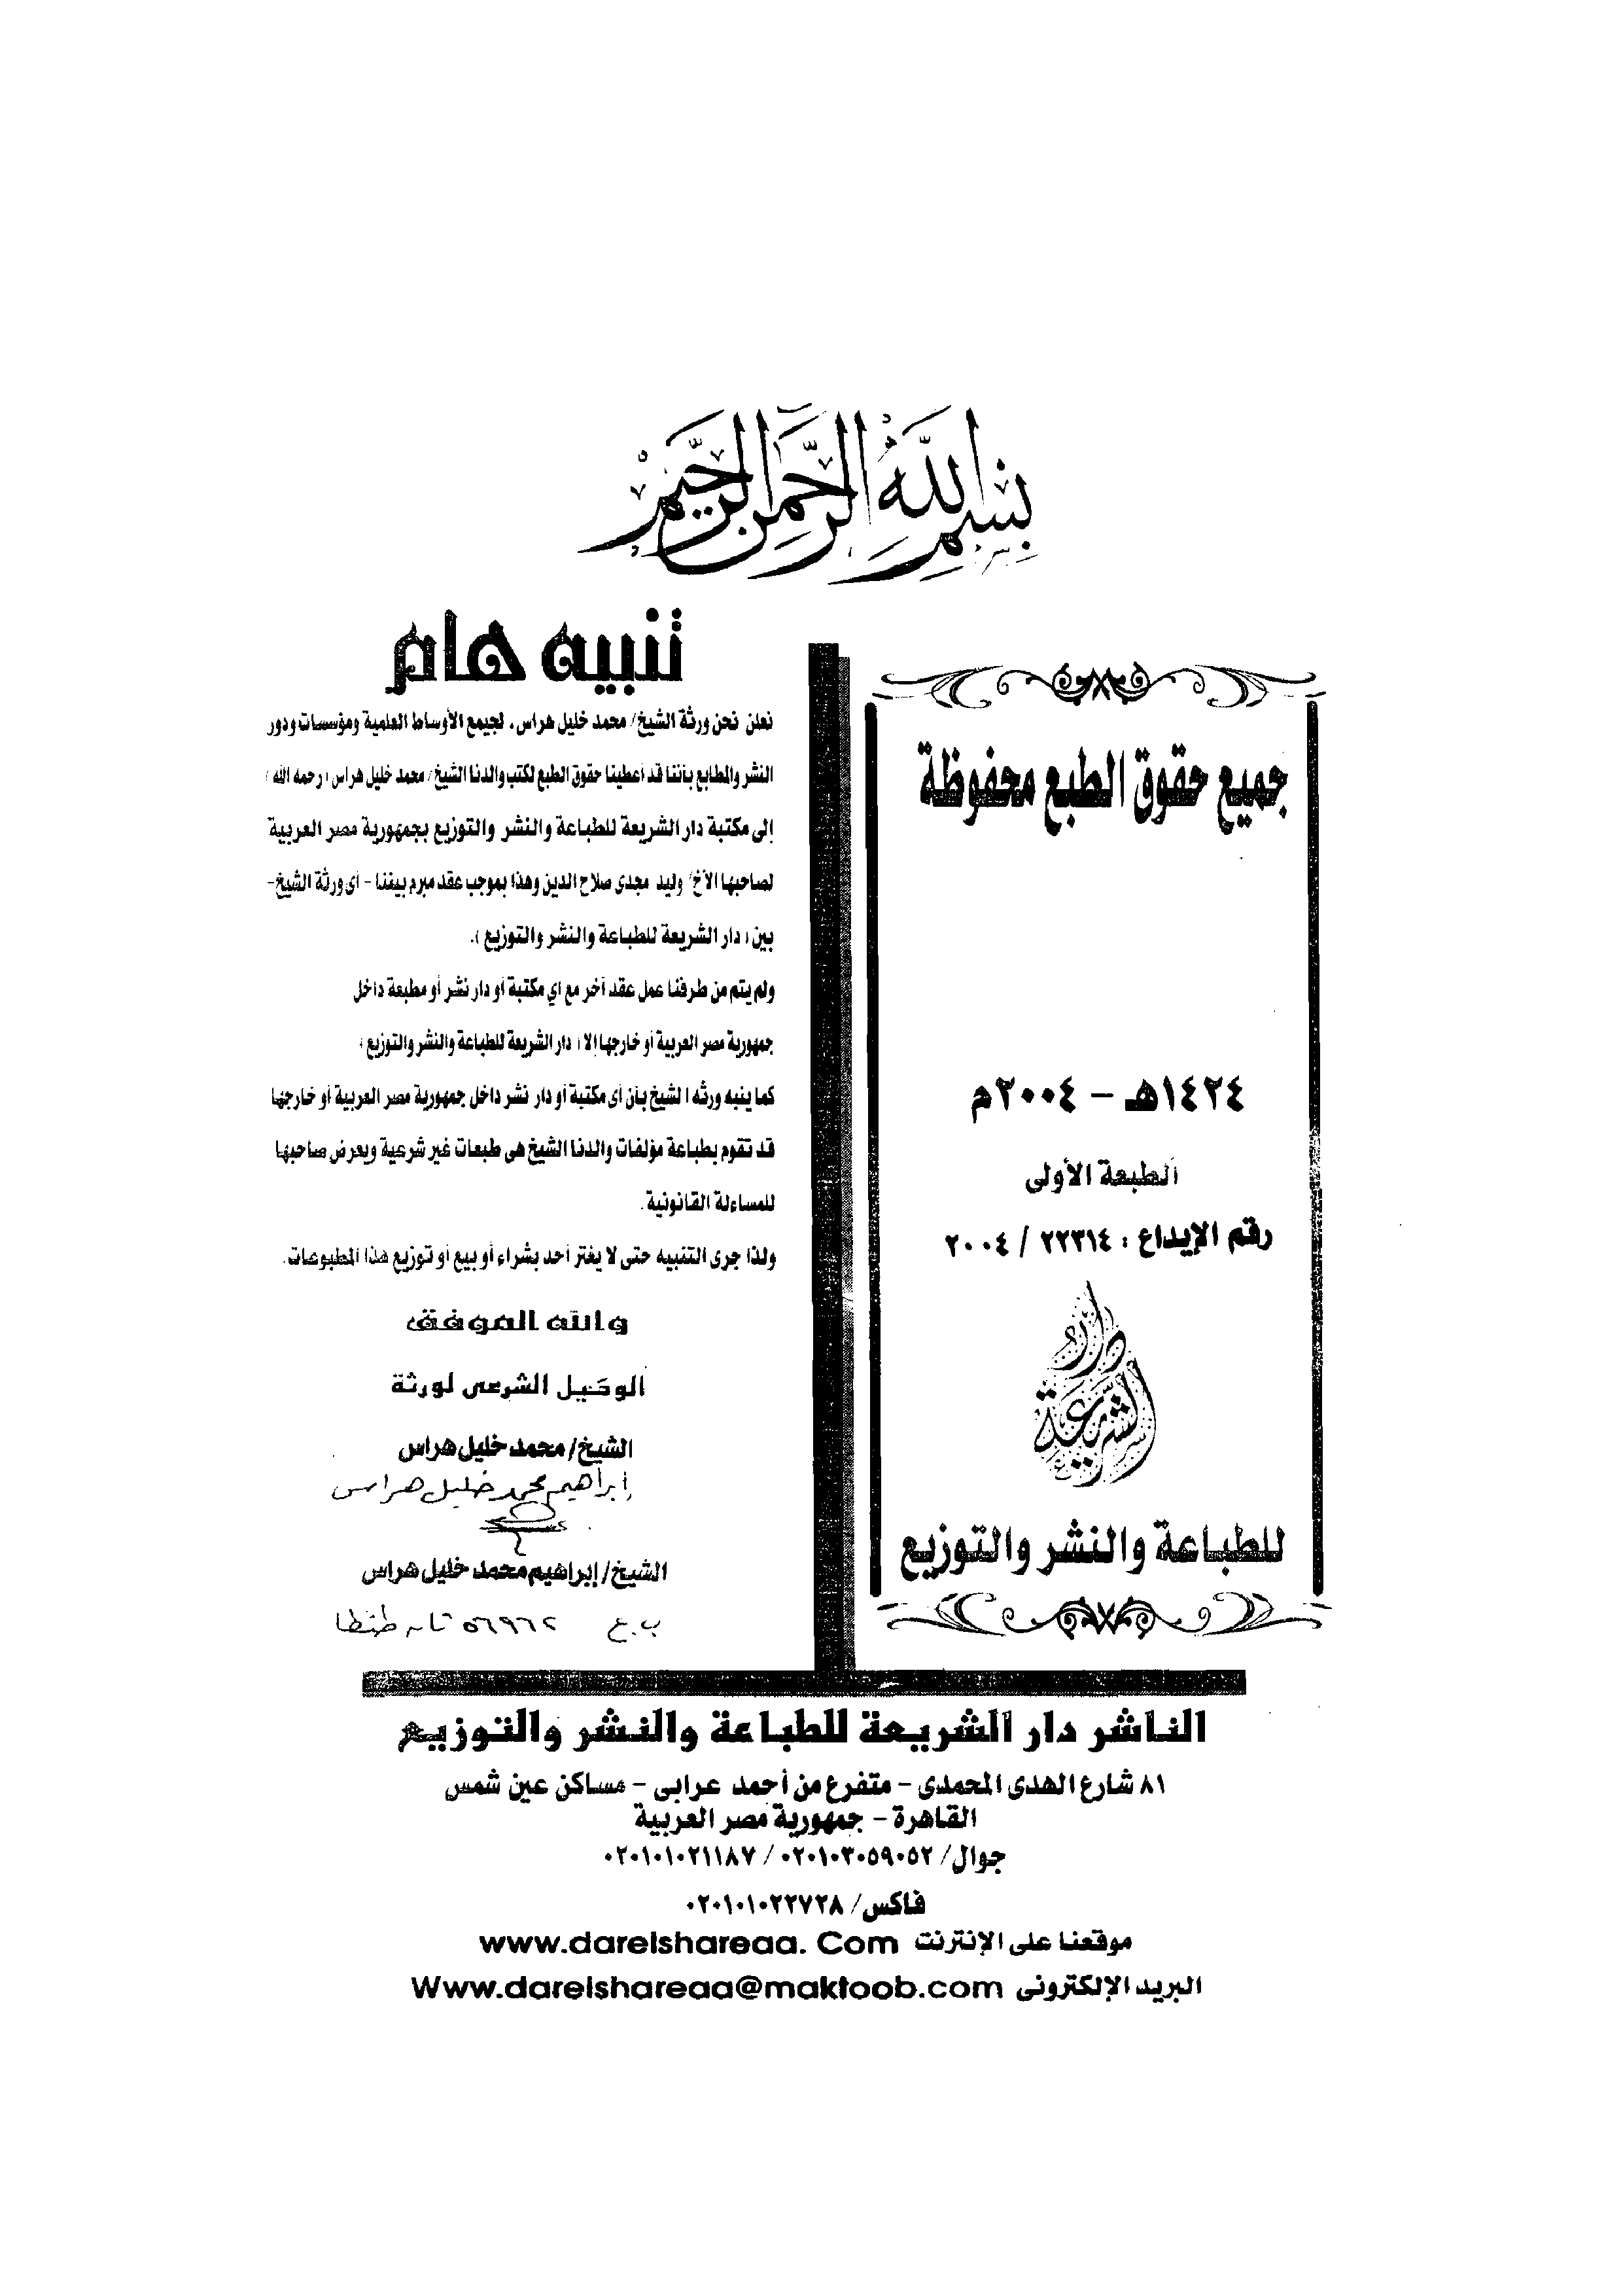 بسم الله الرحمن الرحيم
جميع حقوق الطبع محفوظة
١٤٢٤هـ - ٢٠٠٤م
الطبعة الأولى
رقم الإيداع : ٢٢٣١٤ / ٢٠٠٤
دار الشريعة
للطباعة والنشر والتوزيع
تنبيه هام
نعلن نحن ورثة الشيخ/ محمد خليل هراس، لجيمع الأوساط العلمية ومؤسسات ودور
النشر والمطابع بأننا قد أعطينا حقوق الطبع لكتب والدنا الشيخ/ محمد خليل هراس (رحمه الله)
إلى مكتبة دار الشريعة للطباعة والنشر والتوزيع بجمهورية مصر العربية
لصاحبها الأخ/ وليد مجدى صلاح الدين وهذا بموجب عقد مبرم بيننا - أى ورثة الشيخ-
بين ( دار الشريعة للطباعة والنشر والتوزيع ).
ولم يتم من طرفنا عمل عقد أخر مع اي مكتبة أو دار نشر أو مطبعة داخل
جمهورية مصر العربية أو خارجها إلا ( دار الشريعة للطباعة والنشر والتوزيع )
كما ينبه ورثه الشيخ بأن أى مكتبة أو دار نشر داخل جمهورية مصر العربية أو خارجها
قد تقوم بطباعة مؤلفات والدنا الشيخ هى طبعات غير شرعية ويعرض صاحبها
للمساءلة القانونية .
ولذا جرى التنبيه حتى لا يغتر أحد بشراء أو بيع أو توزيع هذا المطبوعات.
والله الموفق
الوكيل الشرعى لورثة
الشيخ/ محمد خليل هراس
إبراهيم محمد خليل هراس
الشيخ/ إبراهيم محمد خليل هراس
ب.ع ٥٦٩٦٢ طنطا
الناشر دار الشريعة للطباعة والنشر والتوزيع
٨١ شارع الهدى المحمدى - متفرع من أحمد عرابى - مساكن عين شمس
القاهرة - جمهورية مصر العربية
جوال/ ٠٢٠١٠٣٠٥٩٠٥٢ / ٠٢٠١٠١٠٢١١٨٧
فاكس/ ٠٢٠١٠١٠٢٢٧٢٨
موقعنا على الإنترنت www.darelshareaa. Com
البريد الإلكترونى Www.darelshareaa@maktoob.com